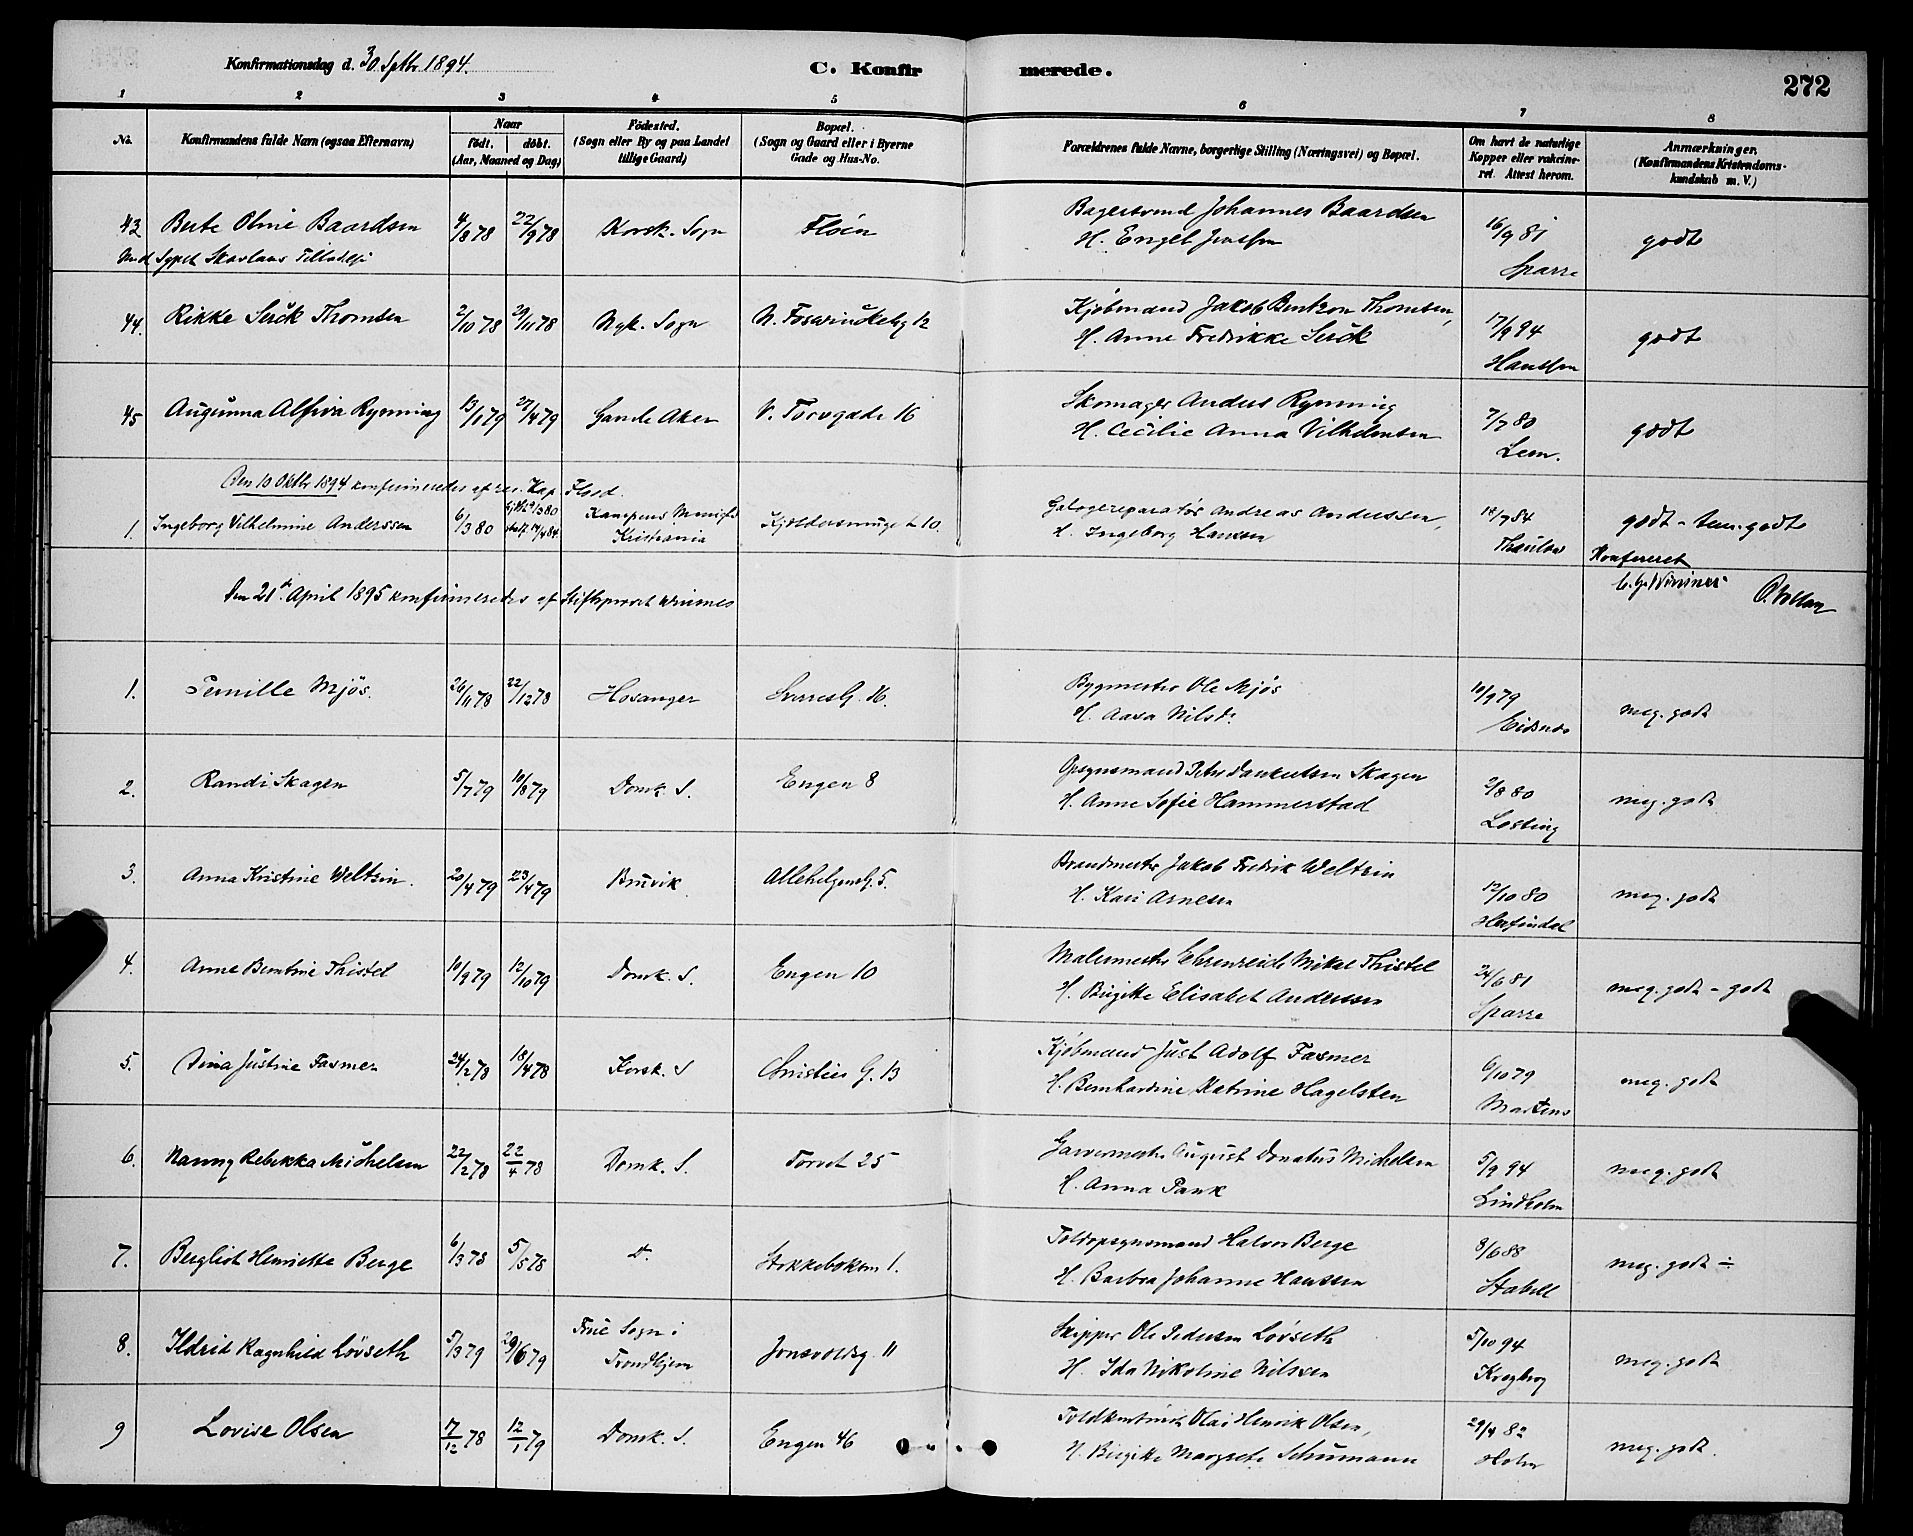 Konfirmationsdag d. 30 Sptbr. 1894.
C. Konfirmerede.
272
1 2 3 4 5 6 7 8
No. Konfirmandens fulde Navn (ogsaa Efternavn) Naar födt. döbt. (Aar, Maaned og Dag) Födested. (Sogn eller By og paa Landet tillige Gaard) Bopæl. (Sogn og Gaard eller i Byerne Gade og Hus-No. Forældrenes fulde Navne, borgerlige Stilling (Næringsvei) og Bopæl. Om havt de naturlige Kopper eller vakcineret. Attest herom. Anmærkninger. (Konfirmandens Kristendomskundskab m. V.)
43 Berte Oline Baardsen 4/8 78 22/9 78 Korsk. Sogn Fløen Bagersvend Johannes Baardsen
H. Engel Jenssen 16/9 81 Sparre godt
44. Rikke Serck Thomsen 2/10 78 29/11 78 Nyk. Sogn N. Fosswinckelsg 12 Kjøbmand Jakob Bentzon Thomsen,
H. Anne Fredrikke Serck 17/9 94 Hanssen godt
45 Augunna Alfiva Rynning 13/1 79 27/4 79 Gamle Aker V. Torvgade 16 Skomager Anders Rynning
H. Cecilie Anna Vilhelmsen 7/7 80 Lem. godt
Den 10 Oktbr 1894 konfirmeredes af res. Kap. Flood.
1. Ingeborg Vilhelmine Anderssen 6/3 80 Kampens Menigh. Kristiania 10. Galogereparatør Andreas Anderssen,
H. Ingeborg Hanssen 18/7 84 Thaulow godt - tem. godt
Konfereret
Den 21de April 1895 konfirmeredes af Stiftsprovst Wisnes
1. Pernille Mjøs. 26/11 78 22/12 78 Hosanger SverresG. 16. Bygmester Ole Mjøs
H. Aasa Nilsdr. 10/9 79 Eidsnes meg. godt
2. Randi Skagen 5/7 79 10/8 79 Domk. S. Engen 8 Opsynsmand Peter Dankertsen Skagen
H. Anne Sofie Hammerstad 2/8 80 Losting meg. godt
3. Anna Kristine Weltzin. 20/4 79 23/4 79 Bruvik Allehelgens G. 5. Brandmester Jakob Fredrik Weltzin
H. Kari Arnesen 12/10 80 Herfindal meg. godt
4. Anne Berntine Thistel 10/9 79 12/10 79 Domk. S. Engen 10 Malermester Ehrenreich Mikal Thistel
H. Birgitte Elisabet Anderssen 24/6 81 Sparre meg. godt - godt
5. Dina Justine Fasmer 24/2 78 18/4 78 Korsk. S Christies G. 13 Kjøbmand Just Adolf Fasmer
H. Bernhardine Katrine Hagelsten 6/10 79 Martens meg. godt
6. Nanny Rebekka Michelsen 22/2 78 22/4 78 Domk. S. Torvet 25 Garvermester August Donatus Michelsen
H. Anna Pank 5/9 94 Lindholm meg. godt
7. Bergliot Henriette Berge 6/3 78 5/5 78 D. Stokkebakken 1. Toldopsynsmand Halvor Berge
H. Barbra Johanne Hanssen 8/6 88 Stabell meg. godt ÷
8. Ildrid Ragnhild Løvseth 5/3 79 29/6 79 Frue Sogn i Trondhjem Jonsvoldsg. 11 Skipper Ole Pedersen Løvseth
H. Ida Nikoline Nilssen 5/10 94 Krogberg meg. godt
9 Lovise Olsen 17/12 78 12/1 79 Domk. S. Engen 46 Olai Henrik Olsen,
H. Birgitte Margrete Schumann 29/4 82 Holm meg. godt.